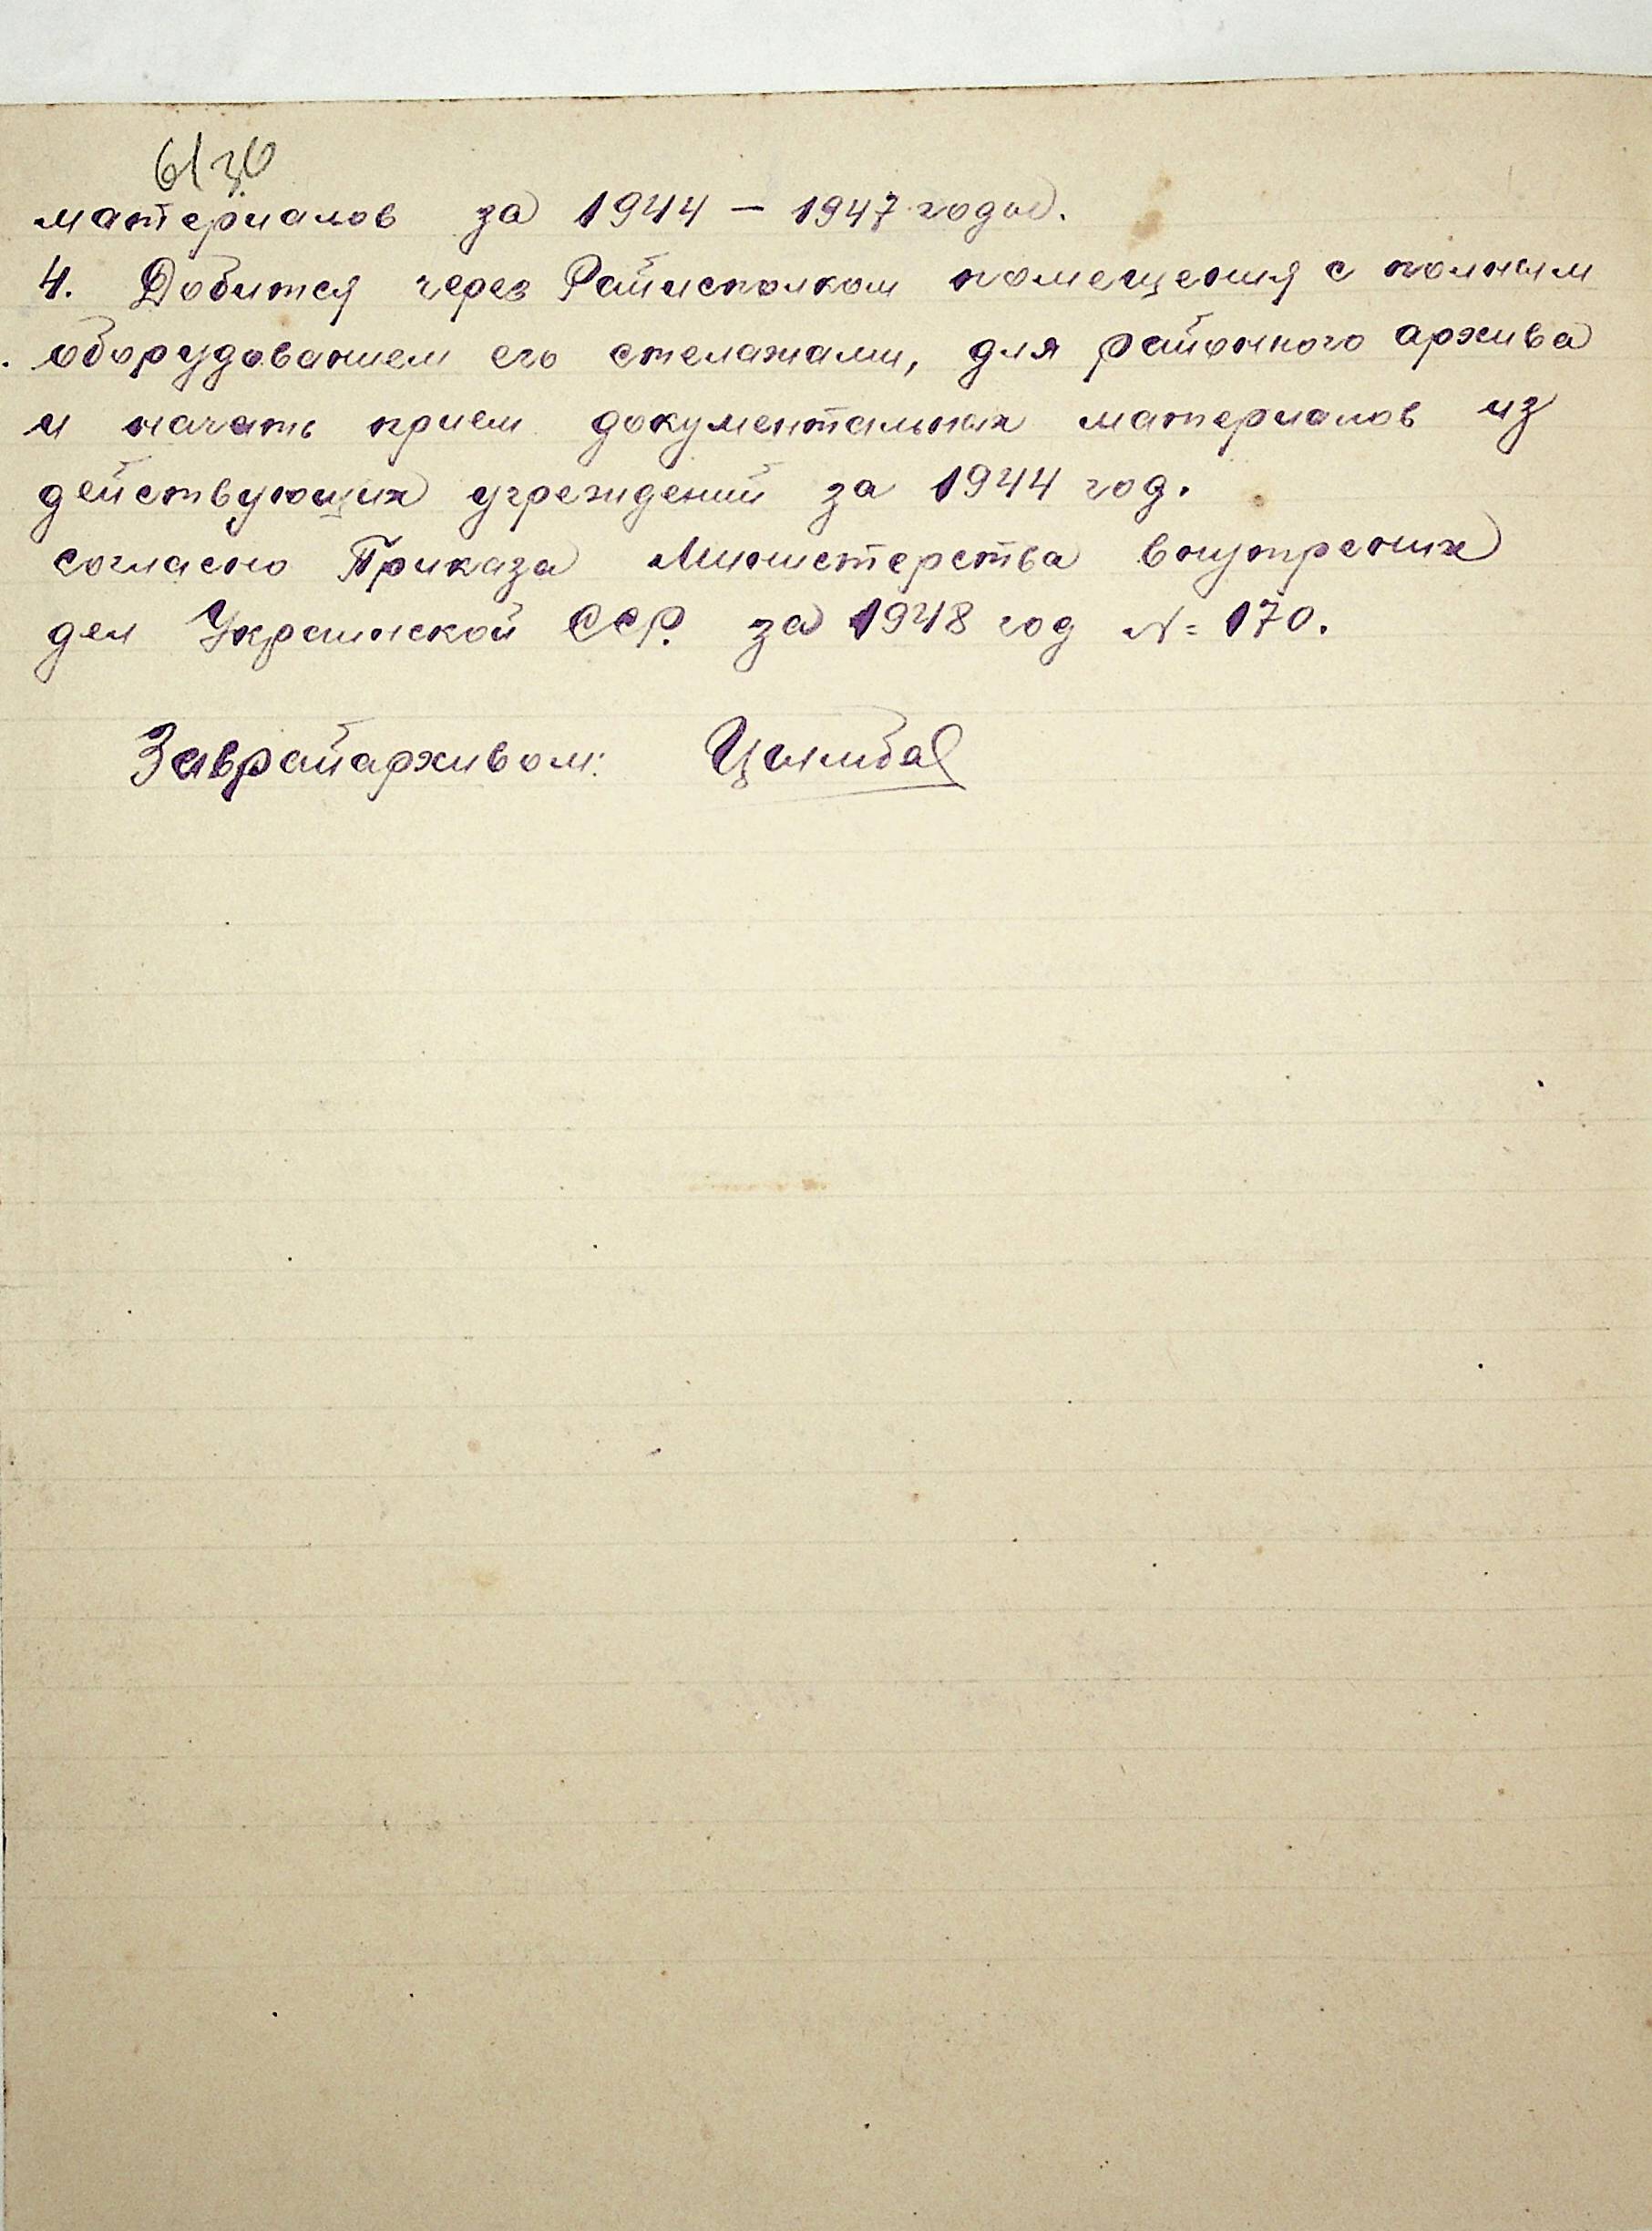 материалов за 1944 – 1947 годы.
4. Добится через Райисполком помещения с полным
оборудованием его стелажами, для районного архива
и начать прием документальных материалов из
действующих учреждений за 1944 год.
согласно Приказа Министерства внутрених
дел Украинской ССР. за 1948 год №: 170.
Заврайархивом: Цымбал